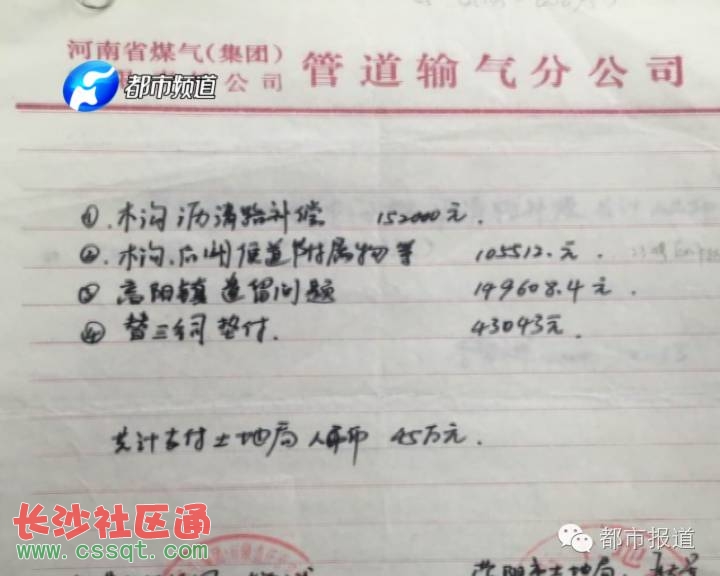 河南省煤气(集团)
公司 管道输气分公司
都市频道
①.木沟沥清路补偿 152000元.
②.木沟.后 便道附属物等 105512.元.
③高阳镇遗留问题 149608.4元.
④替三公司垫付. 43043元.
共计支付土地局人民币 45万元.
长沙社区通
www.cssqt.com
都市报道
荥阳市土地局